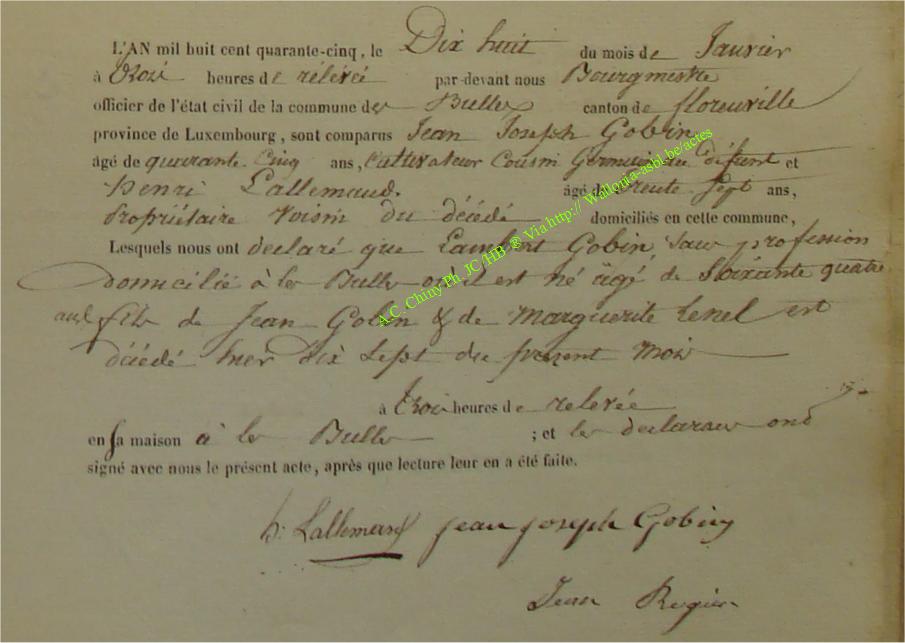 L'AN mil huit cent quarante-cinq, le Dix huit du mois de Janvier
à trois heures de relevée par-devant nous Bourgmestre
officier de l'état civil de la commune des Bulles canton de florenville
province de Luxembourg, sont comparus Jean Joseph Gobin
âgé de quarante-cinq ans, Cultivateur Cousin Germain du défunt et
Henri Lallemand. âgé de trente Sept ans,
Propriétaire Voisin du décédé domiciliés en cette commune,
Lesquels nous ont declaré que Lambert Gobin, Sans profession
domicilié à les Bulles où il est né âgé de Soixante quatre
ans fils de Jean Gobin & de Marguerite henel est
décédé hier dix Sept du présent mois
à trois heures de relevée
en sa maison à les Bulles ; et les declarans ont
signé avec nous le présent acte, après que lecture leur en a été faite.
h: Lallemand Jean joseph Gobin
Jean
A.C. Chiny Ph. JC /HB ® Via http:// Wallonia-asbl.be/actes